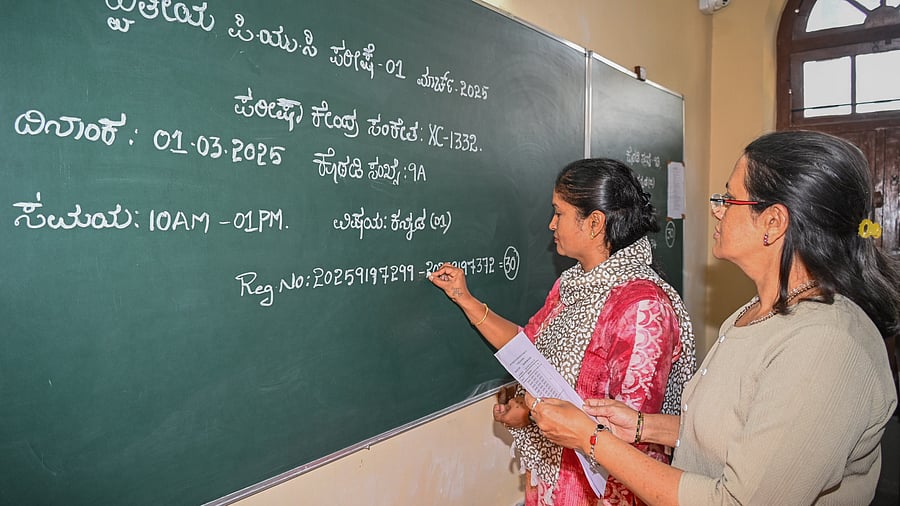 ದ್ವಿತೀಯ ಪಿ.ಯು.ಸಿ ಪರೀಕ್ಷೆ-01 ಮಾರ್ಚ್-2025
ಪರೀಕ್ಷಾ ಕೇಂದ್ರ ಸಂಕೇತ: XC-1332.
ದಿನಾಂಕ: 01.03.2025
ಕೊಠಡಿ ಸಂಖ್ಯೆ: 9A
ಸಮಯ: 10AM - 01PM.
ವಿಷಯ: ಕನ್ನಡ (01)
Reg No: 20259197299 - 20259197372 = 30